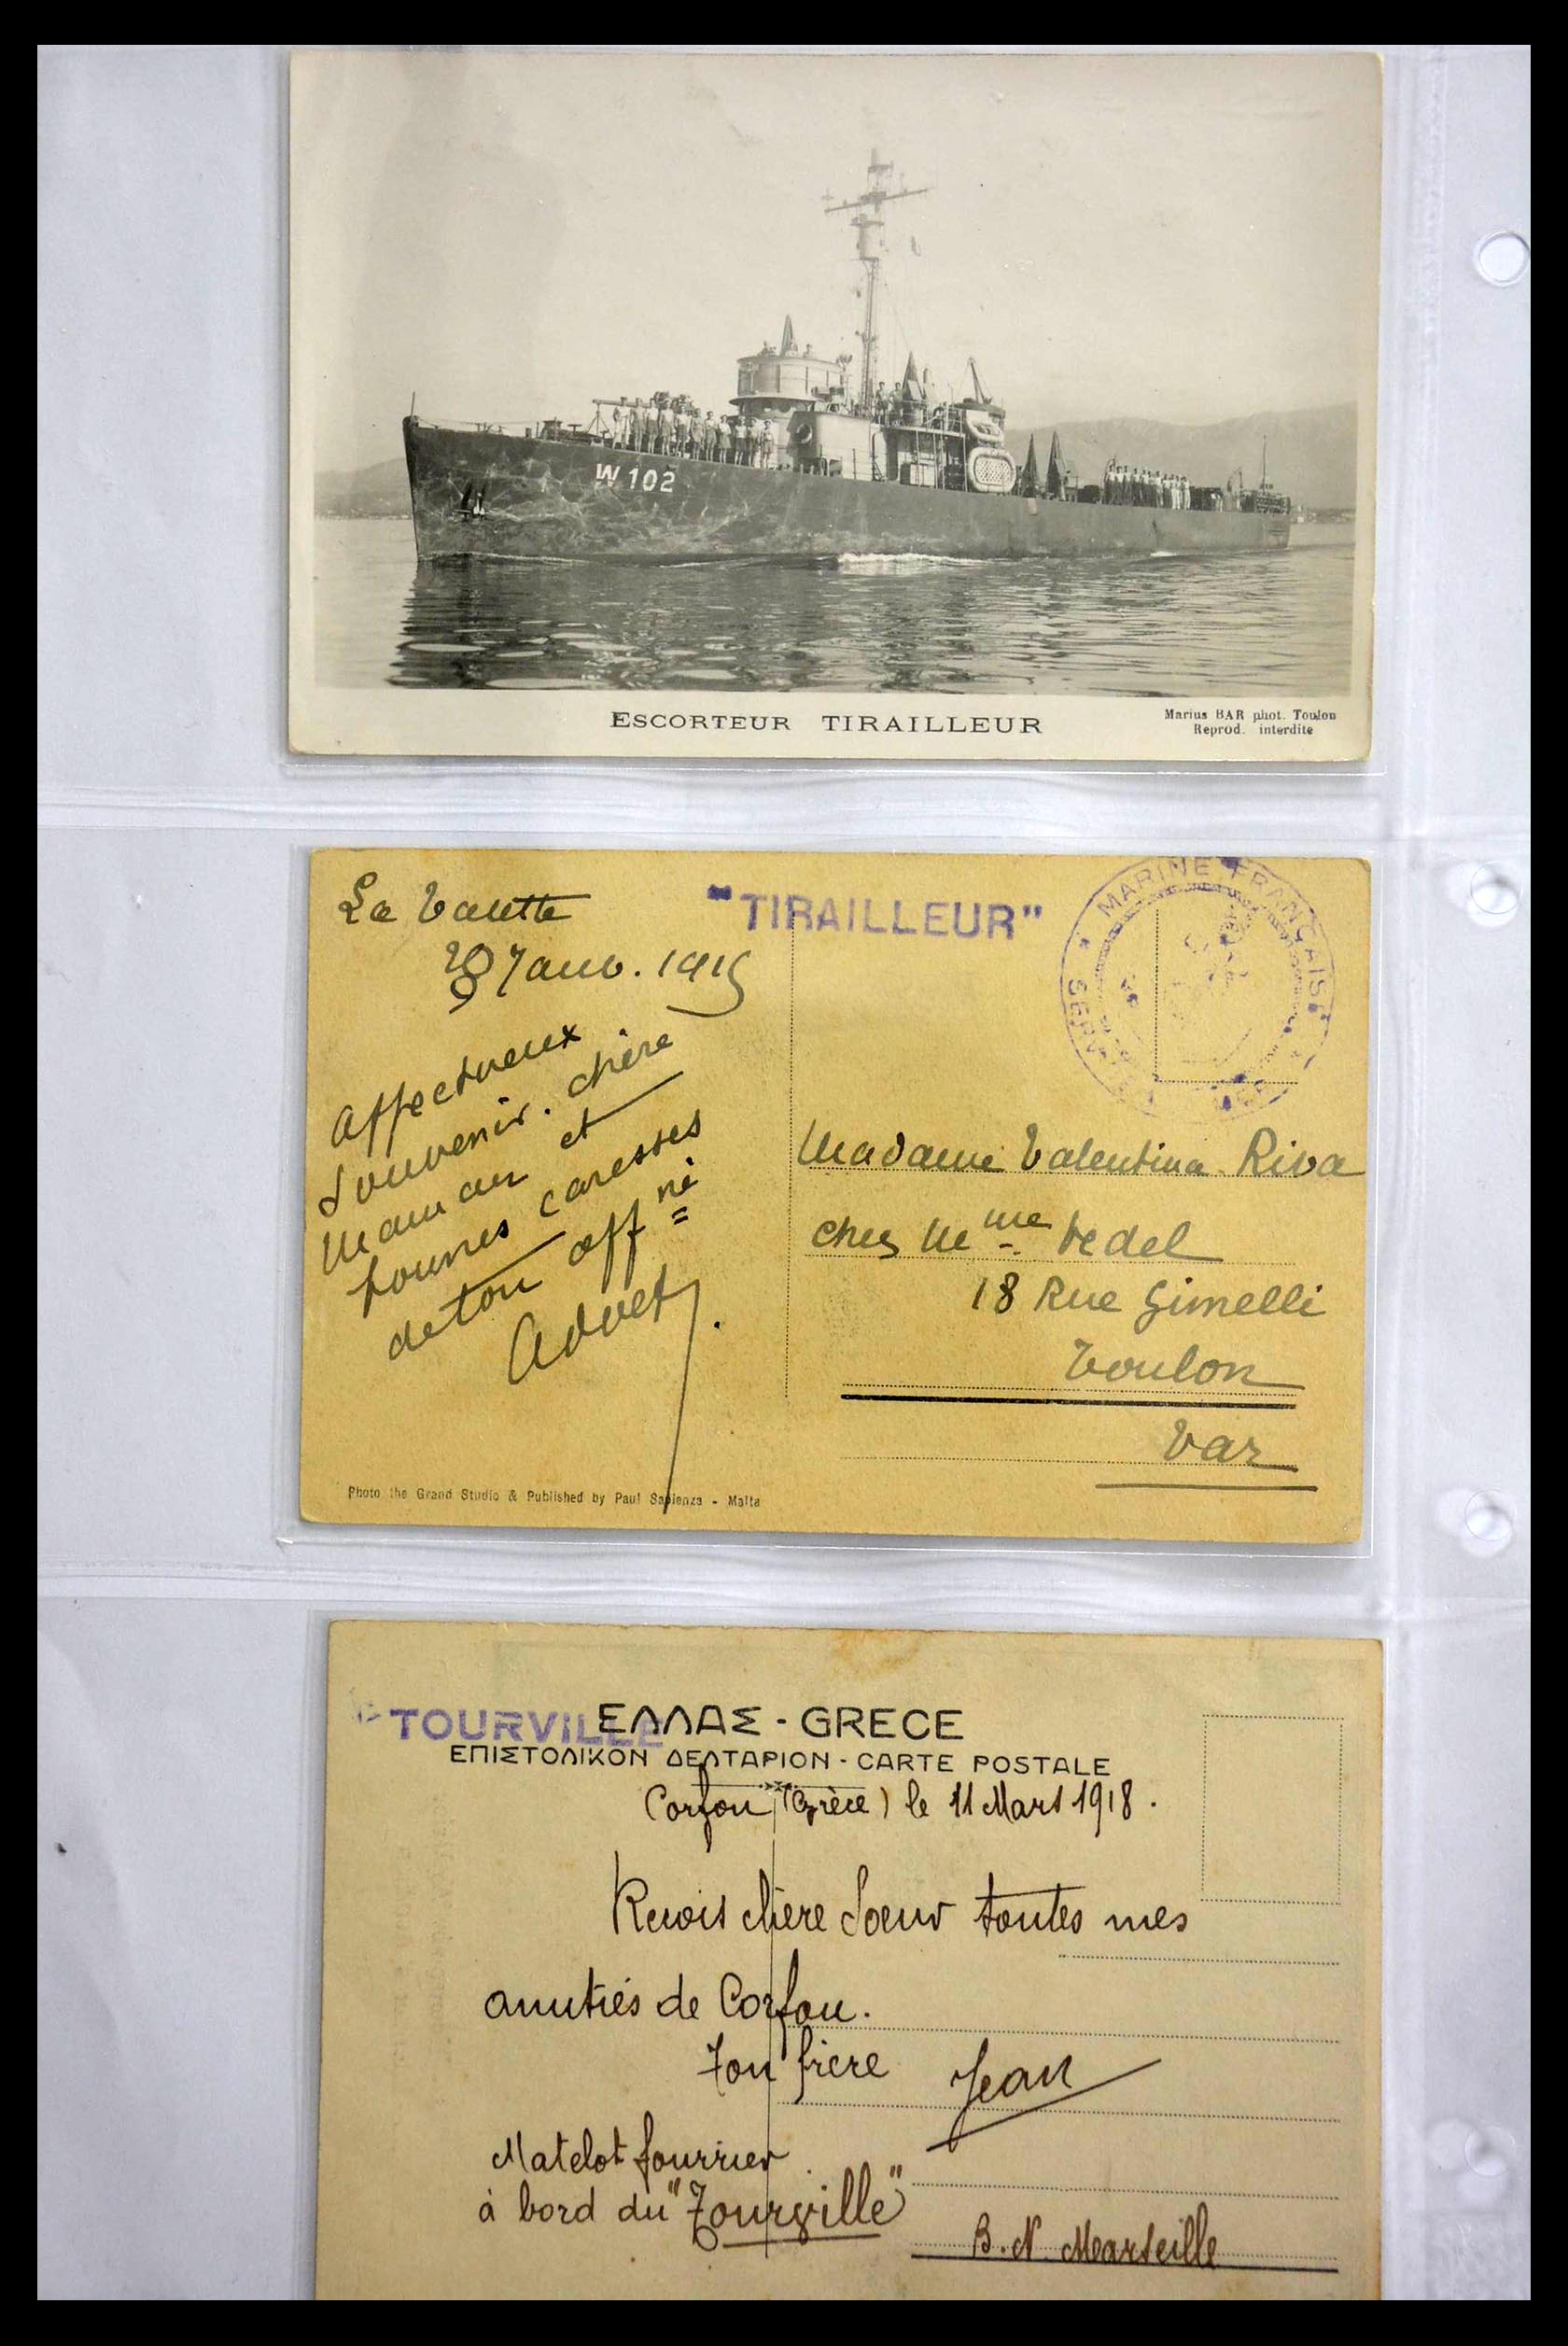 W 102
ESCORTEUR TIRAILLEUR
Marius BAR phot. Toulon
Reprod. interdite
La Valette
"TIRAILLEUR"
MARINE FRANÇAISE
Janv. 1915
Affectueux
souvenir. chère
maman et
bonnes caresses
de ton aff né
Madame Valentina Riva
chez Mme Vedel
18 Rue Gimelli
Toulon
Var
Photo the Grand Studio & Published by Paul Sapienza - Malta
TOURVILLE
ΕΛΛΑΣ - GRECE
ΕΠΙΣΤΟΛΙΚΟΝ ΔΕΛΤΑΡΙΟΝ - CARTE POSTALE
Corfou (Grèce) le 11 Mars 1918.
Recois chère Soeur toutes mes
amitiés de Corfou.
Ton frère Jean
Matelot fourrier
à bord du "Tourville"
B. N. Marseille